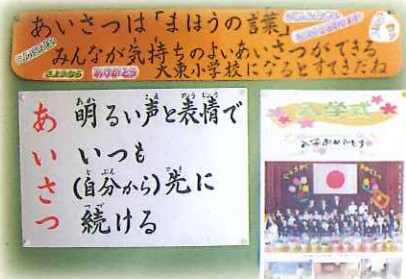 あいさつは「まほうの言葉」
みんなが気持ちのよいあいさつができる
大東小学校になるとすてきだね
さようなら
ありがとう
あ 明るい声と表情で
い いつも
さ (自分から)先に
つ 続ける
入学式